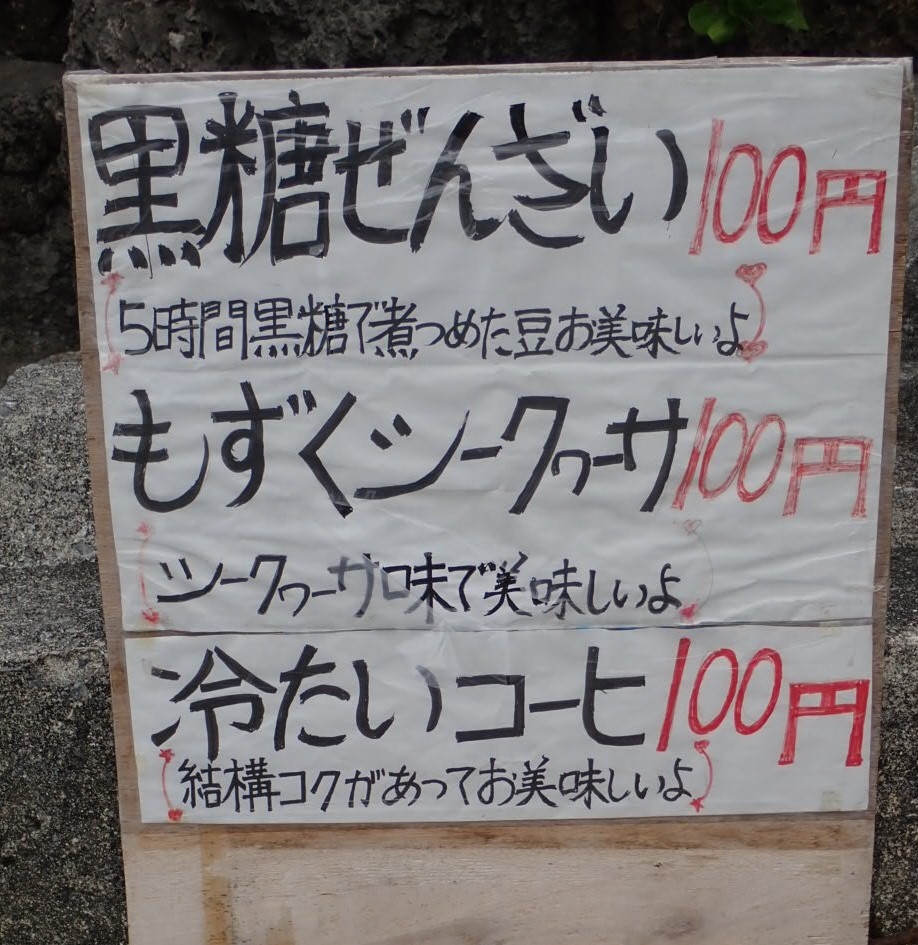 黒糖ぜんざい 100円
5時間黒糖で煮つめた豆お美味しいよ
もずくシークヮーサ 100円
シークヮーサ口味で美味しいよ
冷たいコーヒ 100円
結構コクがあってお美味しいよ